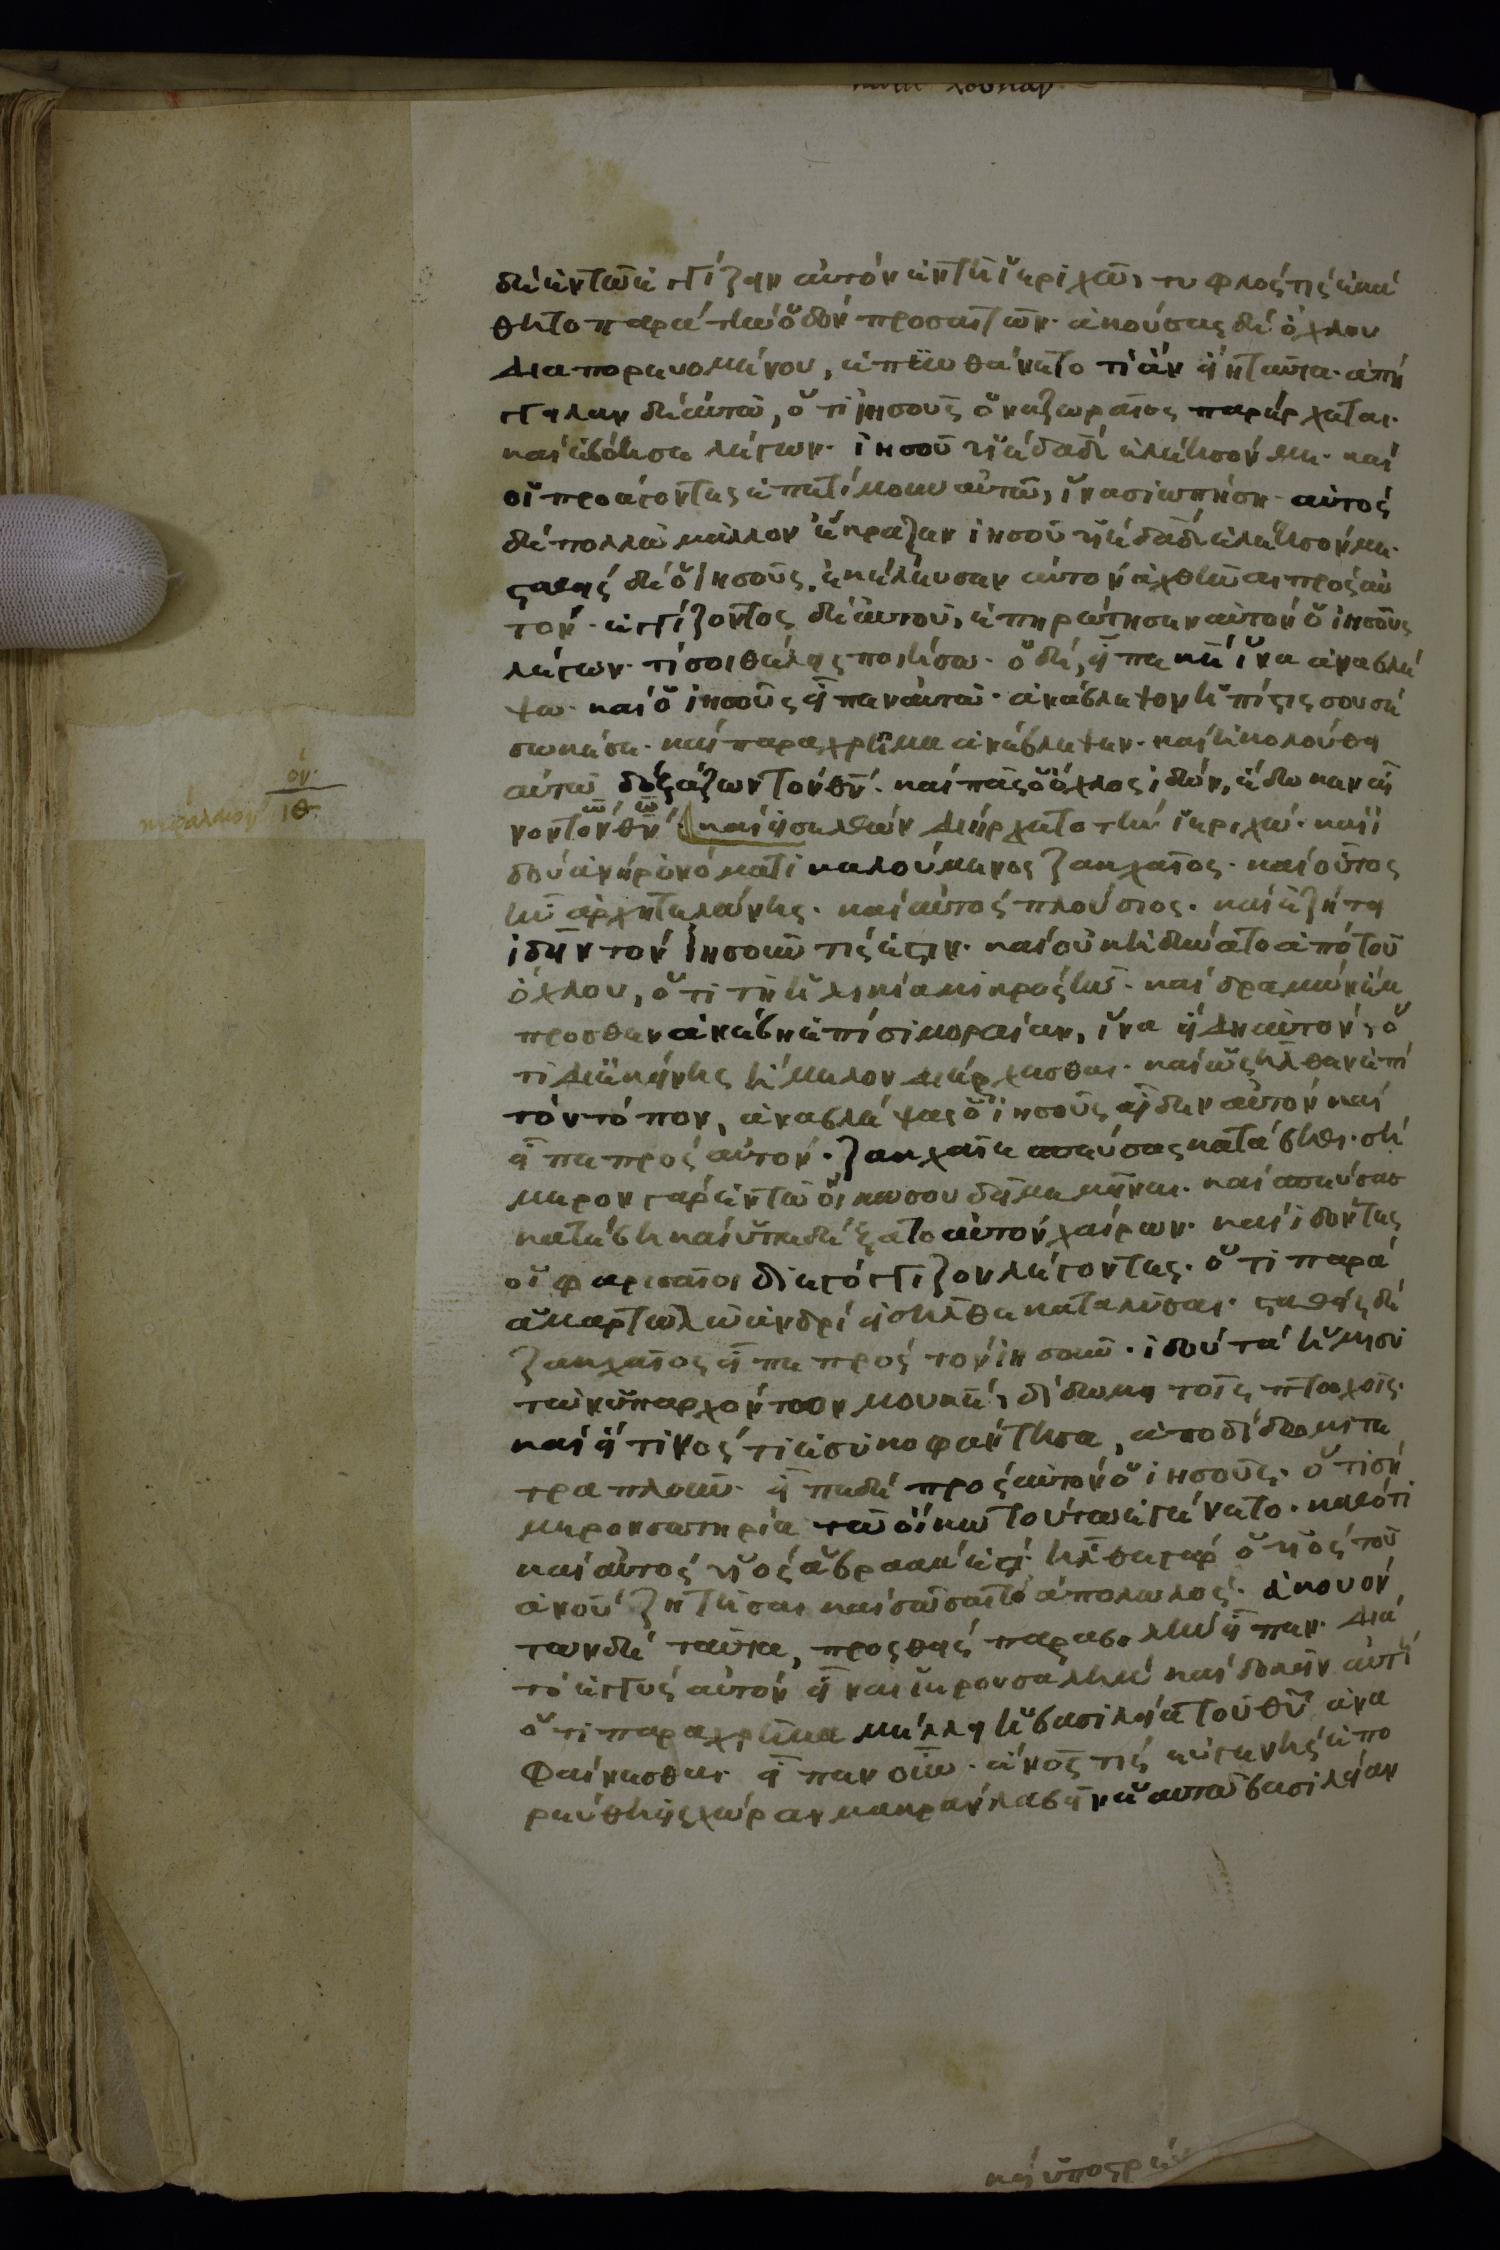 κατὰ λουκᾶν
δὲ ἐν τῶ ἐγγίζειν αὐτὸν ἐν τῆ ἱεριχῶ, τυφλός τις ἐκά
θητο παρὰ τὴν ὁδὸν προσαιτῶν· ἀκούσας δὲ ὄχλου
διαπορευομένου, ἐπυνθάνετο τί ἂν εἴη ταῦτα· ἀπή
γγειλαν δὲ αὐτῶ, ὅτι ἰησοῦς ὁ ναζωραῖος παρέρχεται·
καὶ ἐβόησε λέγων· ἰησοῦ υἱὲ δαδ̅ ἐλέησόν με· καὶ
οἱ προάγοντες ἐπετίμουν αὐτῶ, ἵνα σιωπήση· αὐτὸς
δὲ πολλῶ μάλλον ἔκραζεν ἰησοῦ υἱὲ δαδ̅ ἐλέησόν με·
σταθεὶς δὲ ὁ ἰησοῦς, ἐκέλευσεν αὐτὸν ἀχθῆναι πρὸς αὐ
τόν· ἐγγίζοντος δὲ αὐτοῦ, ἐπηρώτησεν αὐτὸν ὁ ἰησοῦς
λέγων· τί σοι θέλεις ποιήσω· ὁ δὲ, εἶπε κε̅ ἵνα ἀναβλέ
ψω· καὶ ὁ ἰησοῦς εἶπεν αὐτῶ· ἀνάβλεψον ἡ πίστις σου σέ
σωκέσε· καὶ παραχρῆμα ἀνέβλεψεν· καὶ ἠκολούθει
αὐτῶ δοξάζων τὸν θν̅· καὶ πᾶς ὁ ὄχλος ἰδὼν, ἔδωκεν αἶ
νον τὸν θν̅· καὶ εἰσελθὼν διήρχετο τὴν ἱεριχώ· καὶ ἰ
ῶ ῶ
δοὺ ἀνὴρ ὀνόματι καλούμενος ζακχαῖος· καὶ οὗτος
ἦν ἀρχιτελώνης· καὶ αὐτὸς πλούσιος· καὶ ἐζήτει
ἰδεῖν τὸν ἰησοῦν τίς ἐστιν· καὶ οὐκ ἠδύνατο ἀπὸ τοῦ
ὄχλου, ὅτι τῆ ἡλικία μικρὸς ἦν· καὶ δραμὼν ἔμ
προσθεν ἀνέβη ἐπὶ σικομοραίαν, ἵνα εἴδη αὐτόν, ὅ
τι δι' ἐκείνης ἤμελλον διέρχεσθαι· καὶ ὡς ἦλθεν ἐπὶ
τὸν τόπον, ἀναβλέψας ὁ ἰησοῦς εἶδεν αὐτὸν καὶ
εἶπε πρὸς αὐτόν· ζακχαῖε σπεύσας κατάβηθι· σή
μερον γὰρ ἐν τῶ οἴκω σου δεῖ με μεῖναι· καὶ σπεύσας
κατέβη καὶ ὑπεδέξατο αὐτὸν χαίρων· καὶ ἰδόντες
οἱ φαρισαῖοι διεγόγγιζον λέγοντες· ὅτι παρὰ
ἁμαρτωλῶ ἀνδρὶ εἰσῆλθε καταλῦσαι· σταθεὶς δὲ
ζακχαῖος εἶπε πρὸς τὸν ἰησοῦν· ἰδοὺ τὰ ἡμίση
τῶν ὑπαρχόντων μου κε̅, δίδωμι τοῖς πτωχοῖς·
καὶ εἴ τινός τι ἐσυκοφάντησα, ἀποδίδωμι τε
τραπλοῦν· εἶπε δὲ πρὸς αὐτὸν ὁ ἰησοῦς· ὅτι σή
μερον σωτηρία τῶ οἴκω τούτω ἐγένετο· καθότι
καὶ αὐτὸς υἱὸς ἀβρααμ ἐστί· ἦλθε γὰρ ὁ υἱὸς τοῦ
ἀνοῦ ζητῆσαι καὶ σῶσαι τὸ ἀπολωλός· ἀκουόν
των δὲ ταῦτα, προσθεὶς παραβολὴν εἶπεν· διὰ
τὸ ἐγγὺς αὐτὸν εἶναι ἱερουσαλὴμ καὶ δοκεῖν αὐτοὶ
ὅτι παραχρῆμα μέλλει ἡ βασιλεία τοῦ θῦ ἀνα
φαίνεσθαι· εἶπεν οὖν· ἀνος̅ τὶς εὐγενὴς ἐπο
ρεύθη εἰς χώραν μακρὰν λαβεῖν ἑαυτῶ βασιλείαν
κεφάλαιον
ον
ιθ
καὶ ὑποστρέ